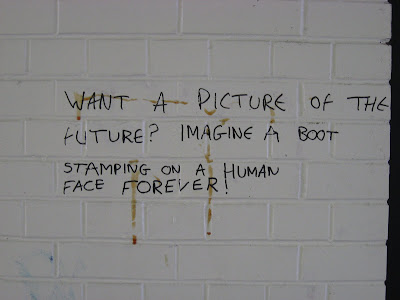 WANT A PICTURE OF THE
FUTURE? IMAGINE A BOOT
STAMPING ON A HUMAN
FACE FOREVER!